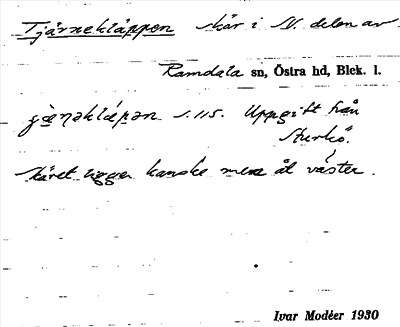 Tjärnekläppen skär i N. delen av
Ramdala sn, Östra hd, Blek. l.
s. 115. Uppgift från
Sturkö.
Skäret ligger kanske mera åt väster.
Ivar Modéer 1930